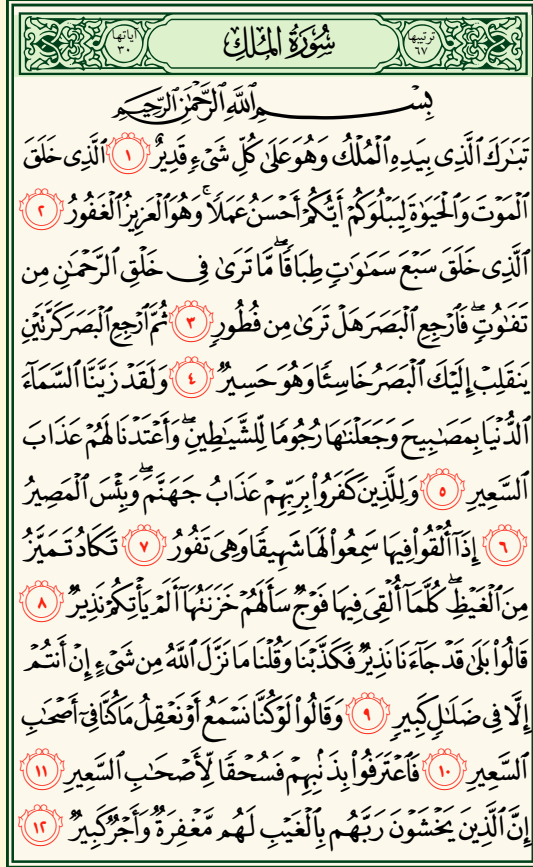 آياتها ٣٠ سُورَةُ الْمُلْكِ ترتيبها ٦٧
بِسْمِ ٱللَّهِ ٱلرَّحْمَٰنِ ٱلرَّحِيمِ
تَبَٰرَكَ ٱلَّذِى بِيَدِهِ ٱلْمُلْكُ وَهُوَ عَلَىٰ كُلِّ شَىْءٍ قَدِيرٌ ١ ٱلَّذِى خَلَقَ
ٱلْمَوْتَ وَٱلْحَيَوٰةَ لِيَبْلُوَكُمْ أَيُّكُمْ أَحْسَنُ عَمَلًا ۚ وَهُوَ ٱلْعَزِيزُ ٱلْغَفُورُ ٢
ٱلَّذِى خَلَقَ سَبْعَ سَمَٰوَٰتٍ طِبَاقًا ۖ مَّا تَرَىٰ فِى خَلْقِ ٱلرَّحْمَٰنِ مِن
تَفَٰوُتٍ ۖ فَٱرْجِعِ ٱلْبَصَرَ هَلْ تَرَىٰ مِن فُطُورٍ ٣ ثُمَّ ٱرْجِعِ ٱلْبَصَرَ كَرَّتَيْنِ
يَنقَلِبْ إِلَيْكَ ٱلْبَصَرُ خَاسِئًا وَهُوَ حَسِيرٌ ٤ وَلَقَدْ زَيَّنَّا ٱلسَّمَآءَ
ٱلدُّنْيَا بِمَصَٰبِيحَ وَجَعَلْنَٰهَا رُجُومًا لِّلشَّيَٰطِينِ ۖ وَأَعْتَدْنَا لَهُمْ عَذَابَ
ٱلسَّعِيرِ ٥ وَلِلَّذِينَ كَفَرُوا۟ بِرَبِّهِمْ عَذَابُ جَهَنَّمَ ۖ وَبِئْسَ ٱلْمَصِيرُ
٦ إِذَآ أُلْقُوا۟ فِيهَا سَمِعُوا۟ لَهَا شَهِيقًا وَهِىَ تَفُورُ ٧ تَكَادُ تَمَيَّزُ
مِنَ ٱلْغَيْظِ ۖ كُلَّمَآ أُلْقِىَ فِيهَا فَوْجٌ سَأَلَهُمْ خَزَنَتُهَآ أَلَمْ يَأْتِكُمْ نَذِيرٌ ٨
قَالُوا۟ بَلَىٰ قَدْ جَآءَنَا نَذِيرٌ فَكَذَّبْنَا وَقُلْنَا مَا نَزَّلَ ٱللَّهُ مِن شَىْءٍ إِنْ أَنتُمْ
إِلَّا فِى ضَلَٰلٍ كَبِيرٍ ٩ وَقَالُوا۟ لَوْ كُنَّا نَسْمَعُ أَوْ نَعْقِلُ مَا كُنَّا فِىٓ أَصْحَٰبِ
ٱلسَّعِيرِ ١٠ فَٱعْتَرَفُوا۟ بِذَنۢبِهِمْ فَسُحْقًا لِّأَصْحَٰبِ ٱلسَّعِيرِ ١١
إِنَّ ٱلَّذِينَ يَخْشَوْنَ رَبَّهُم بِٱلْغَيْبِ لَهُم مَّغْفِرَةٌ وَأَجْرٌ كَبِيرٌ ١٢